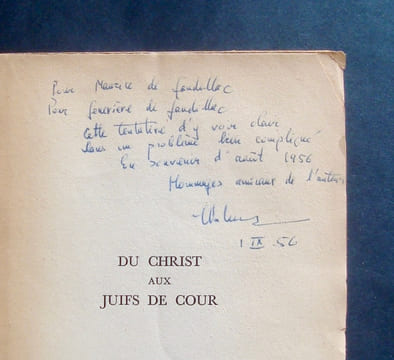 Pour Maurice de Gandillac
Pour Geneviève de Gandillac
Cette tentative d'y voir clair
dans un problème bien compliqué
En souvenir d'août 1956
Hommages amicaux de l'auteur
1 IX 56
DU CHRIST
AUX
JUIFS DE COUR